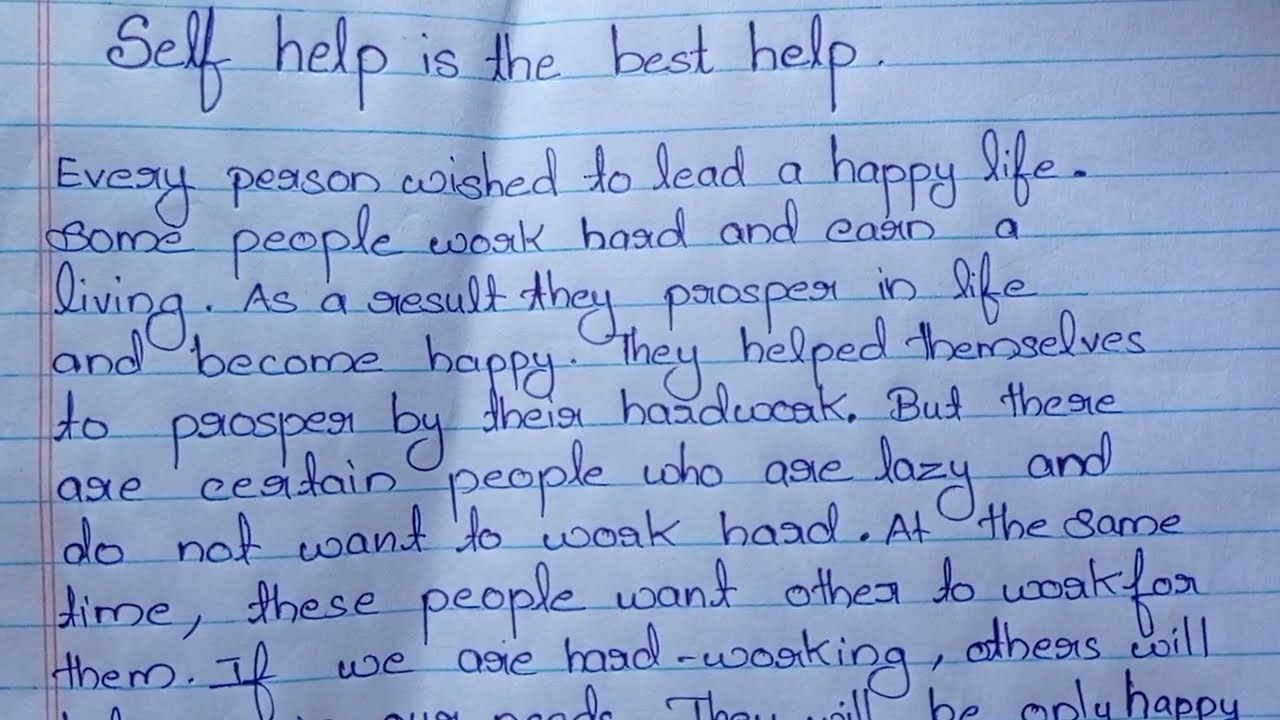 Self help is the best help.
Every person wished to lead a happy life.
some people work hard and earn a
living. As a result they prosper in life
and become happy. They helped themselves
to prosper by their hardwork. But there
are certain people who are lazy and
do not want to work hard. At the same
time, these people want other to work for
them. If we are hard-working, others will
in our needs. They will be only happy